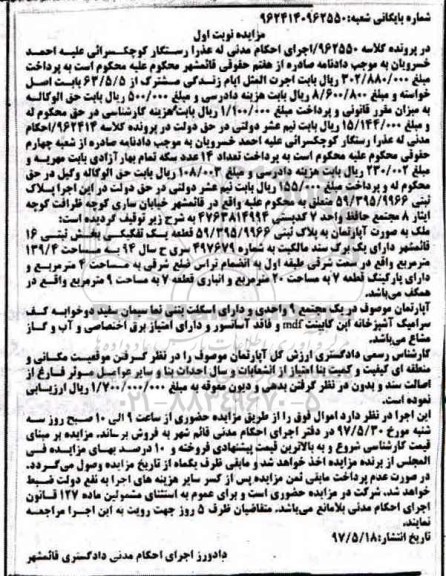 شماره بایگانی شعبه: ۹۶۲۴۱۴۰۹۶۲۵۵۰
مزایده نوبت اول
در پرونده کلاسه ۹۶۲۵۵۰/اجرای احکام مدنی له عذرا رستگار کوچکسرائی علیه احمد
خسرویان به موجب دادنامه صادره از هفتم حقوقی قائمشهر محکوم علیه محکوم است به پرداخت
مبلغ ۳۰۲/۸۸۰/۰۰۰ ریال بابت اجرت المثل ایام زندگی مشترک از ۶۳/۵/۵ بابت اصل
خواسته و مبلغ ۸/۶۰۰/۸۰۰ ریال بابت هزینه دادرسی و مبلغ ۵۰۰/۰۰۰ ریال بابت حق الوکاله
به میزان مقرر قانونی و پرداخت مبلغ ۱/۱۰۰/۰۰۰ ریال بابت هزینه کارشناسی در حق محکوم له
و مبلغ ۱۵/۱۴۴/۰۰۰ ریال بابت نیم عشر دولتی در حق دولت در پرونده کلاسه ۹۶۲۴۱۴/احکام
مدنی له عذرا رستگار کوچکسرائی علیه احمد خسرویان به موجب دادنامه صادره از شعبه چهارم
حقوقی محکوم علیه محکوم است به پرداخت تعداد ۱۴ عدد سکه تمام بهار آزادی بابت مهریه و
مبلغ ۲۳۰/۰۰۲ ریال بابت هزینه دادرسی و مبلغ ۱۰۸/۰۰۳ ریال بابت حق الوکاله وکیل در حق
محکوم له و پرداخت مبلغ ۱۵۵/۰۰۰ ریال بابت نیم عشر دولتی در حق دولت در این اجرا پلاک
ثبتی ۵۹/۳۹۵/۹۹۶۶ متعلق به محکوم علیه واقع در قائمشهر خیابان ساری کوچه ظرافت کوچه
ایثار ۸ مجتمع حافظ واحد ۷ کدپستی ۴۷۶۳۸۱۴۹۹۴ به شرح زیر توقیف گردیده است:
ملک به صورت آپارتمان به پلاک ثبتی ۵۹/۳۹۵/۹۹۶۶ قطعه یک تفکیکی بخش ثبتی ۱۶
قائمشهر دارای یک برگ سند مالکیت به شماره ۴۹۷۶۷۹ سری ح سال ۹۴ به مساحت ۱۳۹/۴
مترمربع واقع در سمت شرقی طبقه اول به انضمام تراس ضلع شرقی به مساحت ۴ مترمربع و
دارای پارکینگ قطعه ۷ به مساحت ۲۰ مترمربع و انباری قطعه ۷ به مساحت ۹ مترمربع واقع در
همکف می‌باشد.
آپارتمان موصوف در یک مجتمع ۹ واحدی و دارای اسکلت بتنی نما سیمان سفید دوخوابه کف
سرامیک آشپزخانه اپن کابینت mdf و فاقد آسانسور و دارای امتیاز برق اختصاصی و آب و گاز
مشاع می‌باشد.
کارشناس رسمی دادگستری ارزش کل آپارتمان موصوف را در نظر گرفتن موقعیت مکانی و
منطقه ای کیفیت و کمیت بنا امتیاز از انشعابات و سال احداث بنا و سایر عوامل موثر فارغ از
اصالت سند و بدون در نظر گرفتن بدهی و دیون معوقه به مبلغ ۱/۷۰۰/۰۰۰/۰۰۰ ریال ارزیابی
نموده است.
این اجرا در نظر دارد اموال فوق را از طریق مزایده حضوری از ساعت ۹ الی ۱۰ صبح روز سه
شنبه مورخ ۹۷/۵/۳۰ در دفتر اجرای احکام مدنی قائم شهر به فروش برساند. مزایده بر مبنای
قیمت کارشناسی شروع و به بالاترین قیمت پیشنهادی فروخته و ۱۰ درصد بهای مزایده فی
المجلس از برنده مزایده اخذ خواهد شد و مابقی ظرف یکماه از تاریخ مزایده وصول می‌گردد.
در صورت عدم پرداخت مابقی ثمن مزایده پس از کسر سایر هزینه های اجرا به نفع دولت ضبط
خواهد شد. شرکت در مزایده حضوری است و برای عموم به استثنای مشمولین ماده ۱۲۷ قانون
اجرای احکام مدنی بلامانع می‌باشد. متقاضیان ظرف ۵ روز جهت رویت به این اجرا مراجعه
نمایند.
تاریخ انتشار: ۹۷/۵/۱۸
دادورز اجرای احکام مدنی دادگستری قائمشهر